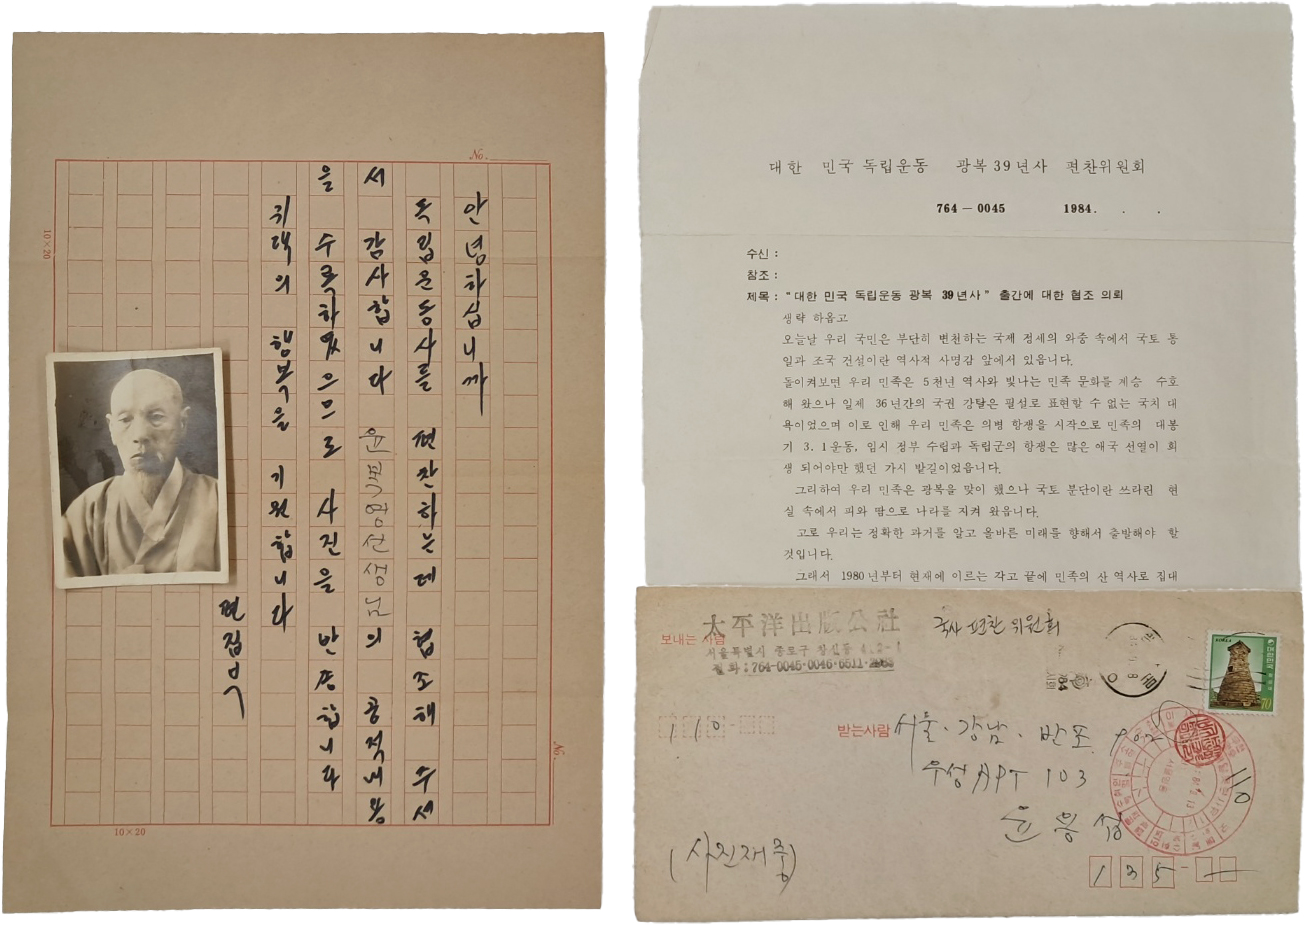 No.
10×20
안녕하십니까
독립운동사를 편찬하는데 협조해 주셔
서 감사합니다 윤복영선생님의 공적내용
을 수록하였으므로 사진을 반송합니다
귀댁의 행복을 기원합니다
편집부
No.
10×20
대한 민국 독립운동 광복 39년사 편찬위원회
764-0045 1984. . .
수신 :
참조 :
제목 : "대한 민국 독립운동 광복 39년사" 출간에 대한 협조 의뢰
생략 하옵고
오늘날 우리 국민은 부단히 변천하는 국제 정세의 와중 속에서 국토 통
일과 조국 건설이란 역사적 사명감 앞에서 있읍니다.
돌이켜보면 우리 민족은 5천년 역사와 빛나는 민족 문화를 계승 수호
해 왔으나 일제 36년간의 국권 강탈은 필설로 표현할 수 없는 국치 대
욕이었으며 이로 인해 우리 민족은 의병 항쟁을 시작으로 민족의 대봉
기 3.1운동, 임시 정부 수립과 독립군의 항쟁은 많은 애국 선열이 희
생 되어야만 했던 가시 밭길이었읍니다.
그리하여 우리 민족은 광복을 맞이 했으나 국토 분단이란 쓰라린 현
실 속에서 피와 땀으로 나라를 지켜 왔읍니다.
고로 우리는 정확한 과거를 알고 올바른 미래를 향해서 출발해야 할
것입니다.
그래서 1980년부터 현재에 이르는 각고 끝에 민족의 산 역사로 집대
보내는 사람
太平洋出版公社
서울특별시 종로구 창신동
전화 : 764-0045·0046·6511
국사 편찬 위원회
대한민국
70
110-
받는사람 서울·강남·반포
우성APT 103
윤봉섭
110
(사진재중)
135-